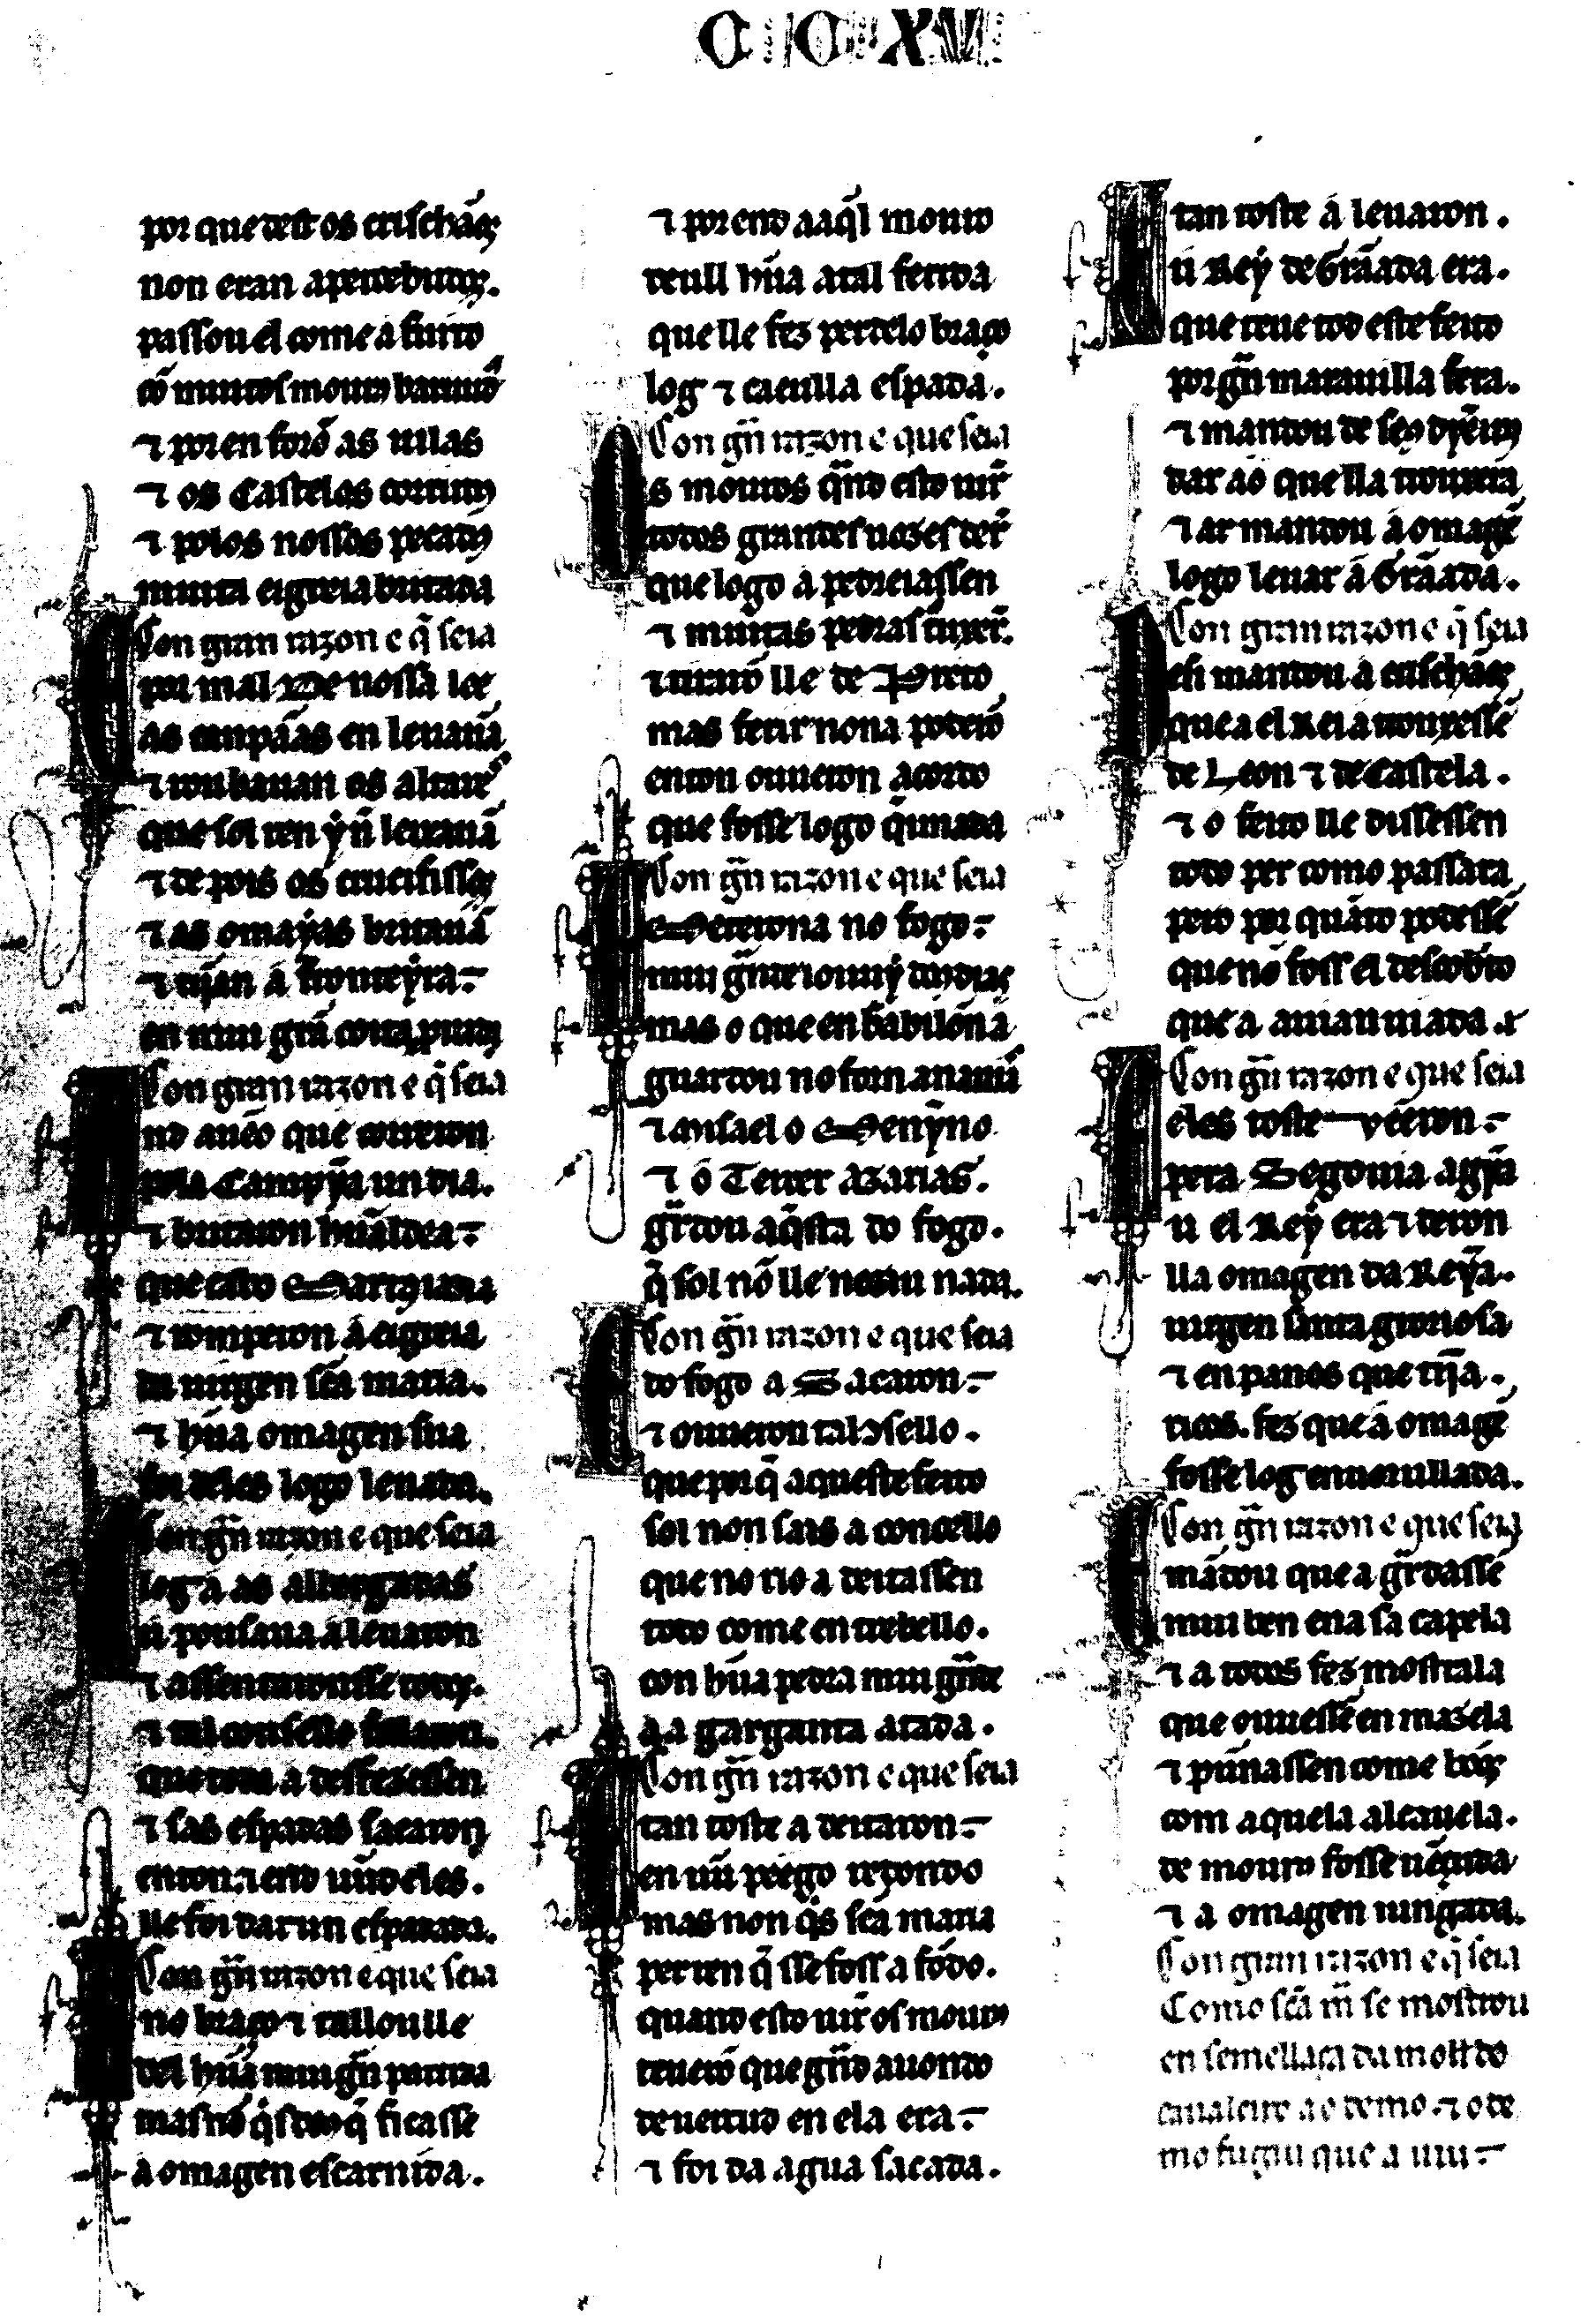 CC XV
por que desto os crischãos
non eran apercebudos.
passou el come a furto
cõ muitos mouros barruntõ
⁊ poren forõ as uilas
⁊ os Castelos corrudos
⁊ polos nossos pecados
muita eigreia britada
Con gran razon e q̄ seia
por mal De nossa lee
as conpãas en leuauã
⁊ roubauan os altares
que sol ren ỹ nõ leixauã
⁊ depois os crucifissos
⁊ as omayas britauã
⁊ tijan a fronteyra
en mui grã coita
Con gran razon e q̄ seia
nd auẽo que correron
pela Campỹa un dia.
⁊ britaron hũa aldea
que cabo Martos iazia
⁊ romperon a eigreia
da uirgen scã maria.
⁊ hũa omagen sua
foi deles logo leuada.
Con grã razon e que seia
log a as albergadas
u pousaua a leuaron
⁊ assentaronsse todos.
⁊ tal consello fillaron.
que toda a desfezessen
⁊ sas espadas sacaron
enton. ⁊ endo ũu deles.
lle foi dar un espadada.
Con grã razon e que seia
no braço ⁊ tallou lle
del hũa mui grã partida
mas nõ q̇s deus q̄ ficasse
a omagen escarnida.
⁊ porend a aq̄l mouro
deull hũa atal ferida
que lle fez perdelo braço
log ⁊ caeulla espada.
Con grã razon e que seia
Os mouros q̃ndo esto uirõ
todos grandes uozes derõ
que logo a pedreiassen
⁊ muitas pedras
⁊ tirarõ lle de Preto
mas ferir nona poderõ
enton ouueron acordo
que fosse logo q̄imada
Con grã razon e que seia
e Meterona no fogo
mui grãde ⁊ ouuỹ dous dias
mas o que en babilonia
guardou no forn ananiã
⁊ misael o Menỹno
⁊ o Tercer azarias.
gr̃dou aq̄sta do fogo.
q̄ sol nõ lle noziu nada.
Con grã razon e que seia
do fogo a Sacaron
⁊ ouueron tal ↄsello.
que por q̄ aqueste feito
sol non sais a concello
que no rio a deitassen
todo come en trebello.
con hũa pedra mui grãde
aa garganta atada.
Con grã razon e que seia
tan toste a deitaron
en ũu peego redondo
mas non q̇s scã maria
per ren q̄ sse foss a fõdo.
quando esto uirõ os mouros
teuerõ que grãd auondo
de uertud en ela era
⁊ foi da agua sacada.
E tan toste a leuaron.
u Rey de Grãada era.
que teue tod este feito
por grã marauilla fera.
⁊ mandou de seus dỹeiros
dar ao que lla trouxera
⁊ ar mandou a omagẽ
logo leuar a Grãada.
Con gran razon e q̄ seia
esi mandou a crischãos
que a el Rei a trouxessẽ
de Leon ⁊ de Castela.
⁊ o feito lle dissessen
todo per como passara
pero por quãto podessẽ
que nõ foss el descob̃to
que a auian uiada.
Con grã razon e que seia
eles toste veẽron
pera Segouia agỹa
u el Rey era ⁊ deron
lla omagen da Reỹa.
uirgen santa gloriosa
⁊ en panos que tijña.
ricos. fez que a omagẽ
fosse log enuorullada.
Con grã razon e que seia
E mãdou que a gr̃dassẽ
mui ben ena sa capela
⁊ a todos fez mostrala
que ouuessẽ en mazela
⁊ punassen come bõos
com aquela alcauela.
de mouros fosse uẽçuda
⁊ a omagen uingada.
Con gran razon e q̄ seia
Como scã m̃ se mostrou
en semellãça da
caualeiro ao demo. ⁊ o de
mo fugiu que a uiu